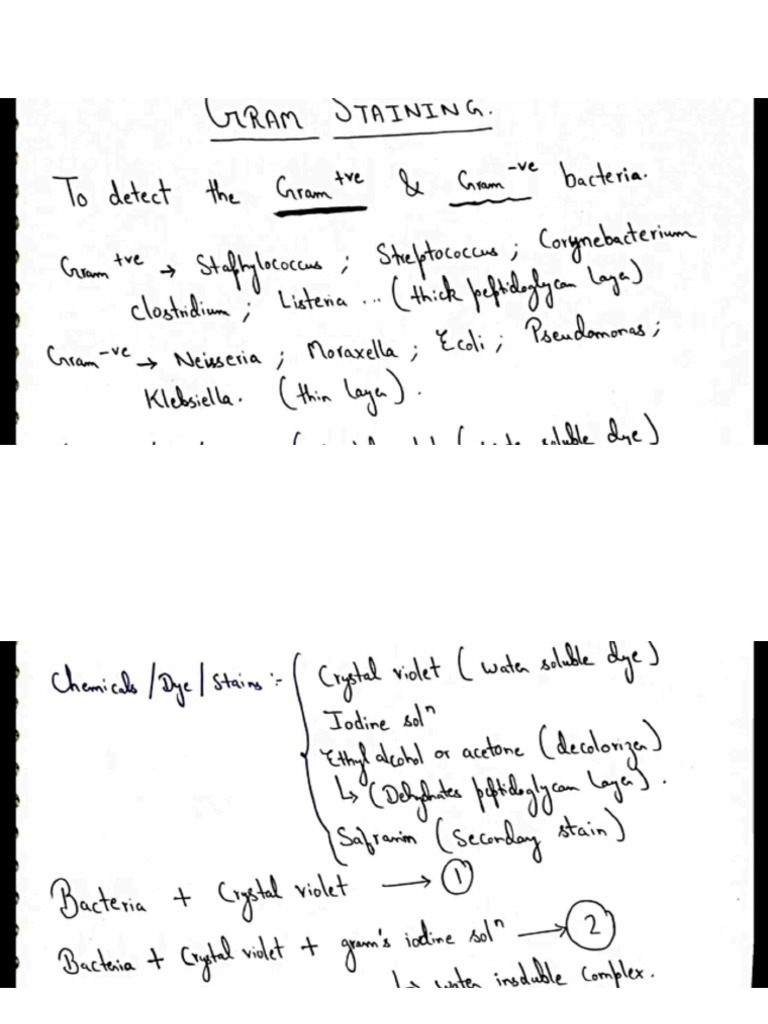 GRAM STAINING.
To detect the Gram +ve & Gram -ve bacteria.
Gram +ve → Staphylococcus ; Streptococcus ; Corynebacterium
clostridium ; Listeria ... (thick peptidoglycan layer)
Gram -ve → Neisseria ; Moraxella ; Ecoli ; Pseudomonas ;
Klebsiella. (thin layer).
soluble dye)
Chemicals/Dye/Stains :- Crystal violet (water soluble dye)
Iodine solⁿ
Ethyl alcohol or acetone (decolorizer)
↳ (Dehydrates peptidoglycan layer).
Safranin (Secondary stain)
Bacteria + Crystal violet → 1
Bacteria + Crystal violet + gram's iodine solⁿ → 2
↳ water insoluble complex.